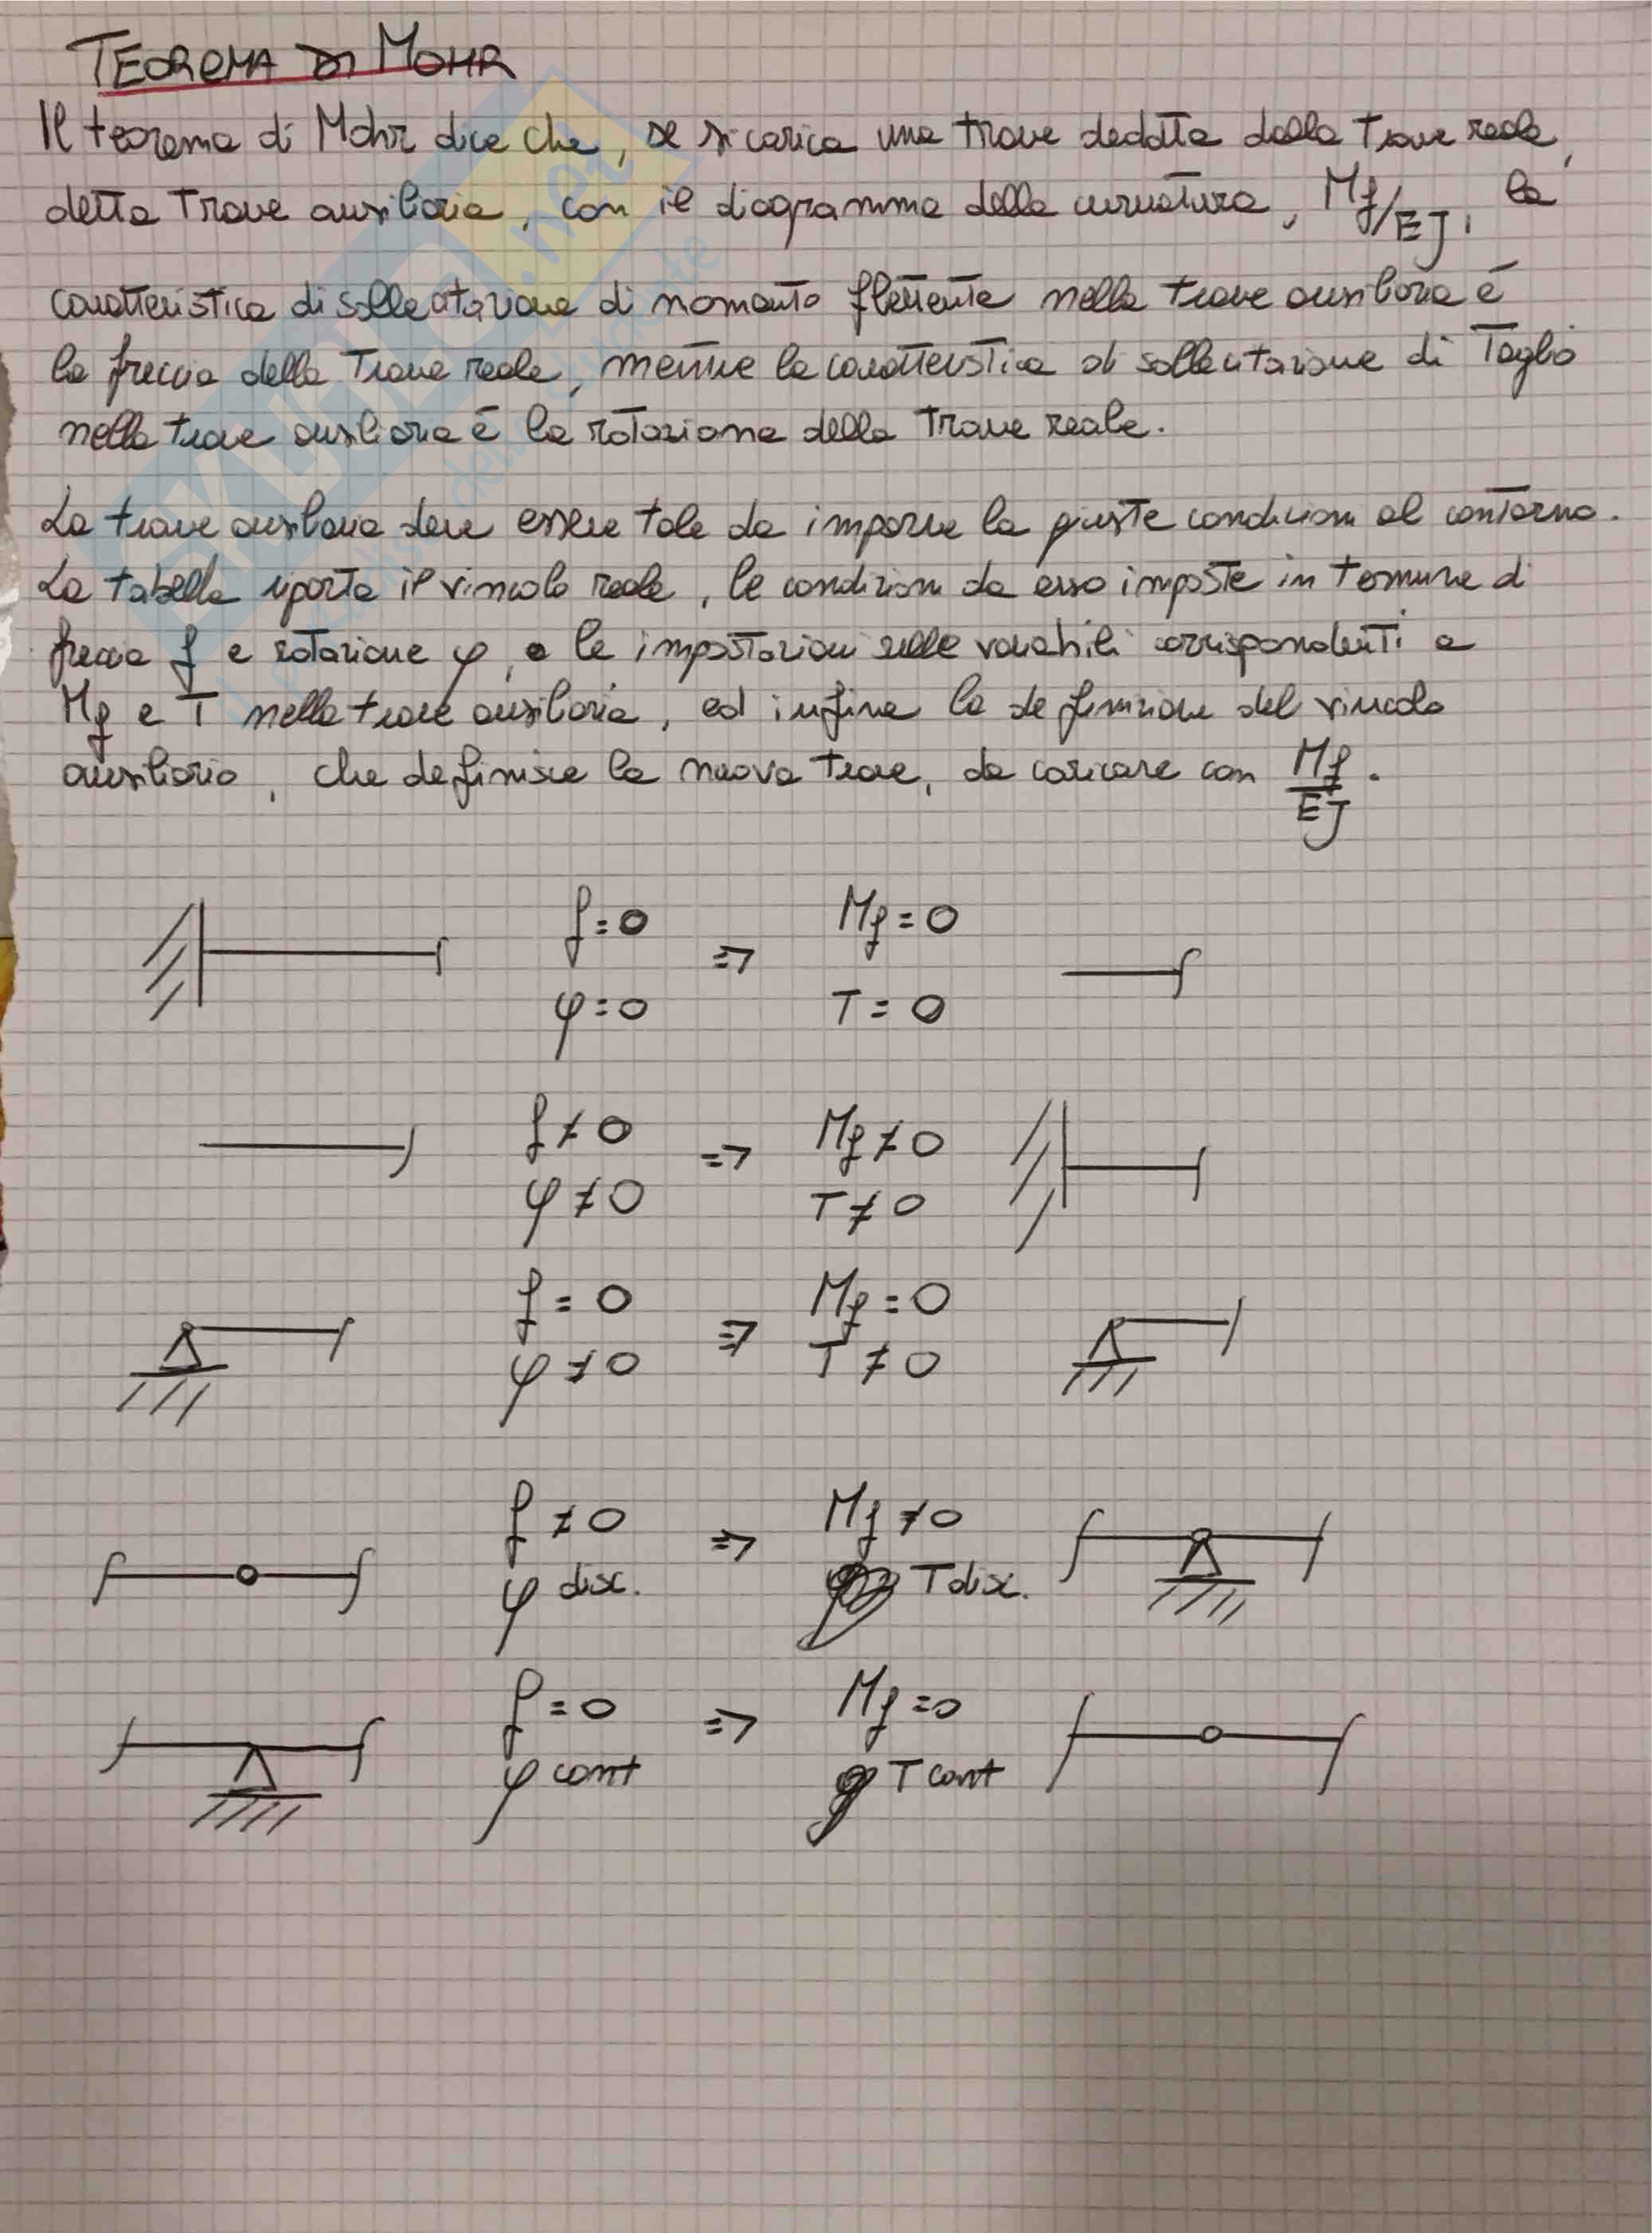 TEOREMA DI MOHR
Il teorema di Mohr dice che, se si carica una trave dedotta dalla trave reale,
detta trave ausiliaria, con il diagramma della curvatura, Mf/EJ, la
caratteristica di sollecitazione di momento flettente nella trave ausiliaria è
la freccia della trave reale, mentre la caratteristica di sollecitazione di Taglio
nella trave ausiliaria è la rotazione della trave reale.
La trave ausiliaria deve essere tale da imporre la giuste condizioni al contorno.
La tabella riporta il vincolo reale, le condizioni da esso imposte in termine di
freccia f e rotazione φ, e le impostazioni sulle variabili corrispondenti a
Mf e T nella trave ausiliaria, ed infine la definizione del vincolo
ausiliario, che definisce la nuova trave, da caricare con Mf/EJ.
f=0 => Mf=0
φ=0 T=0
f≠0 => Mf≠0
φ≠0 T≠0
f=0 => Mf=0
φ≠0 T≠0
f≠0 => Mf≠0
φ disc. T disc.
f=0 => Mf=0
φ cont T cont
SKUOLA.net